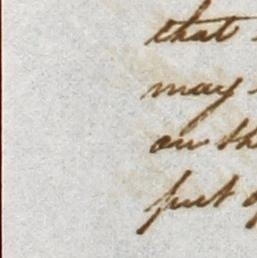 that
may
on th
put o